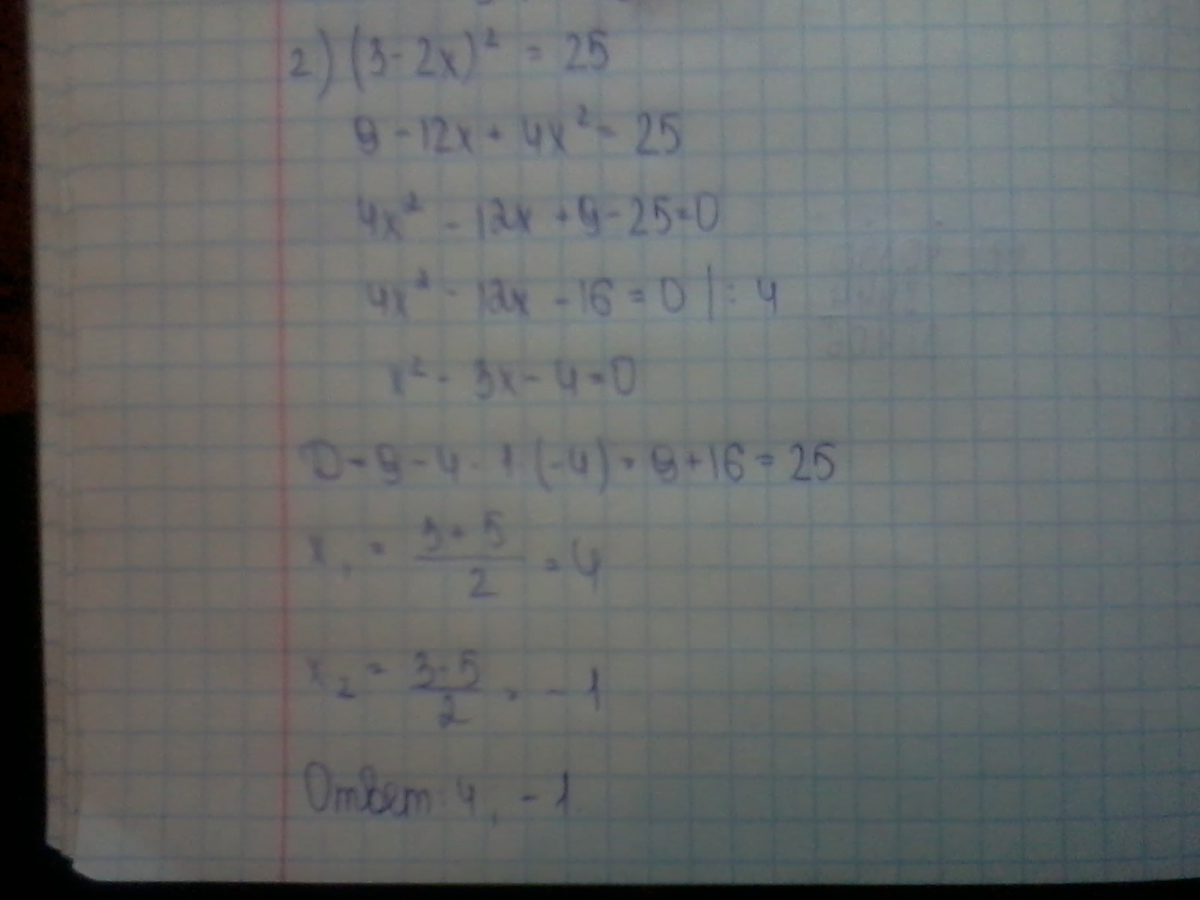 2) (3-2x)² = 25
9 - 12x + 4x² = 25
4x² - 12x + 9 - 25 = 0
4x² - 12x - 16 = 0 | : 4
x² - 3x - 4 = 0
D = 9 - 4 · 1 (-4) = 9 + 16 = 25
x₁ = (3+5)/2 = 4
x₂ = (3-5)/2 = -1
Ответ: 4, -1